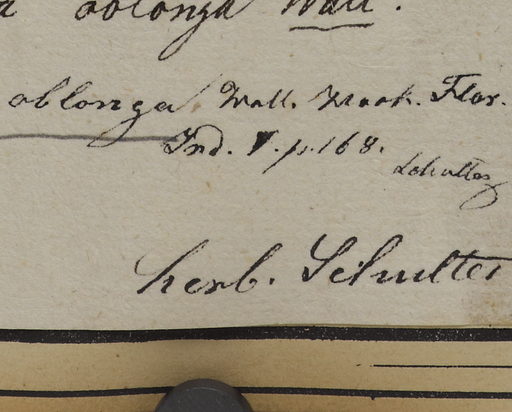 a oblonga Wall.
oblonga Wall. Hook. Flor.
Ind. V. p. 168.
Schultes
herb. Schultes